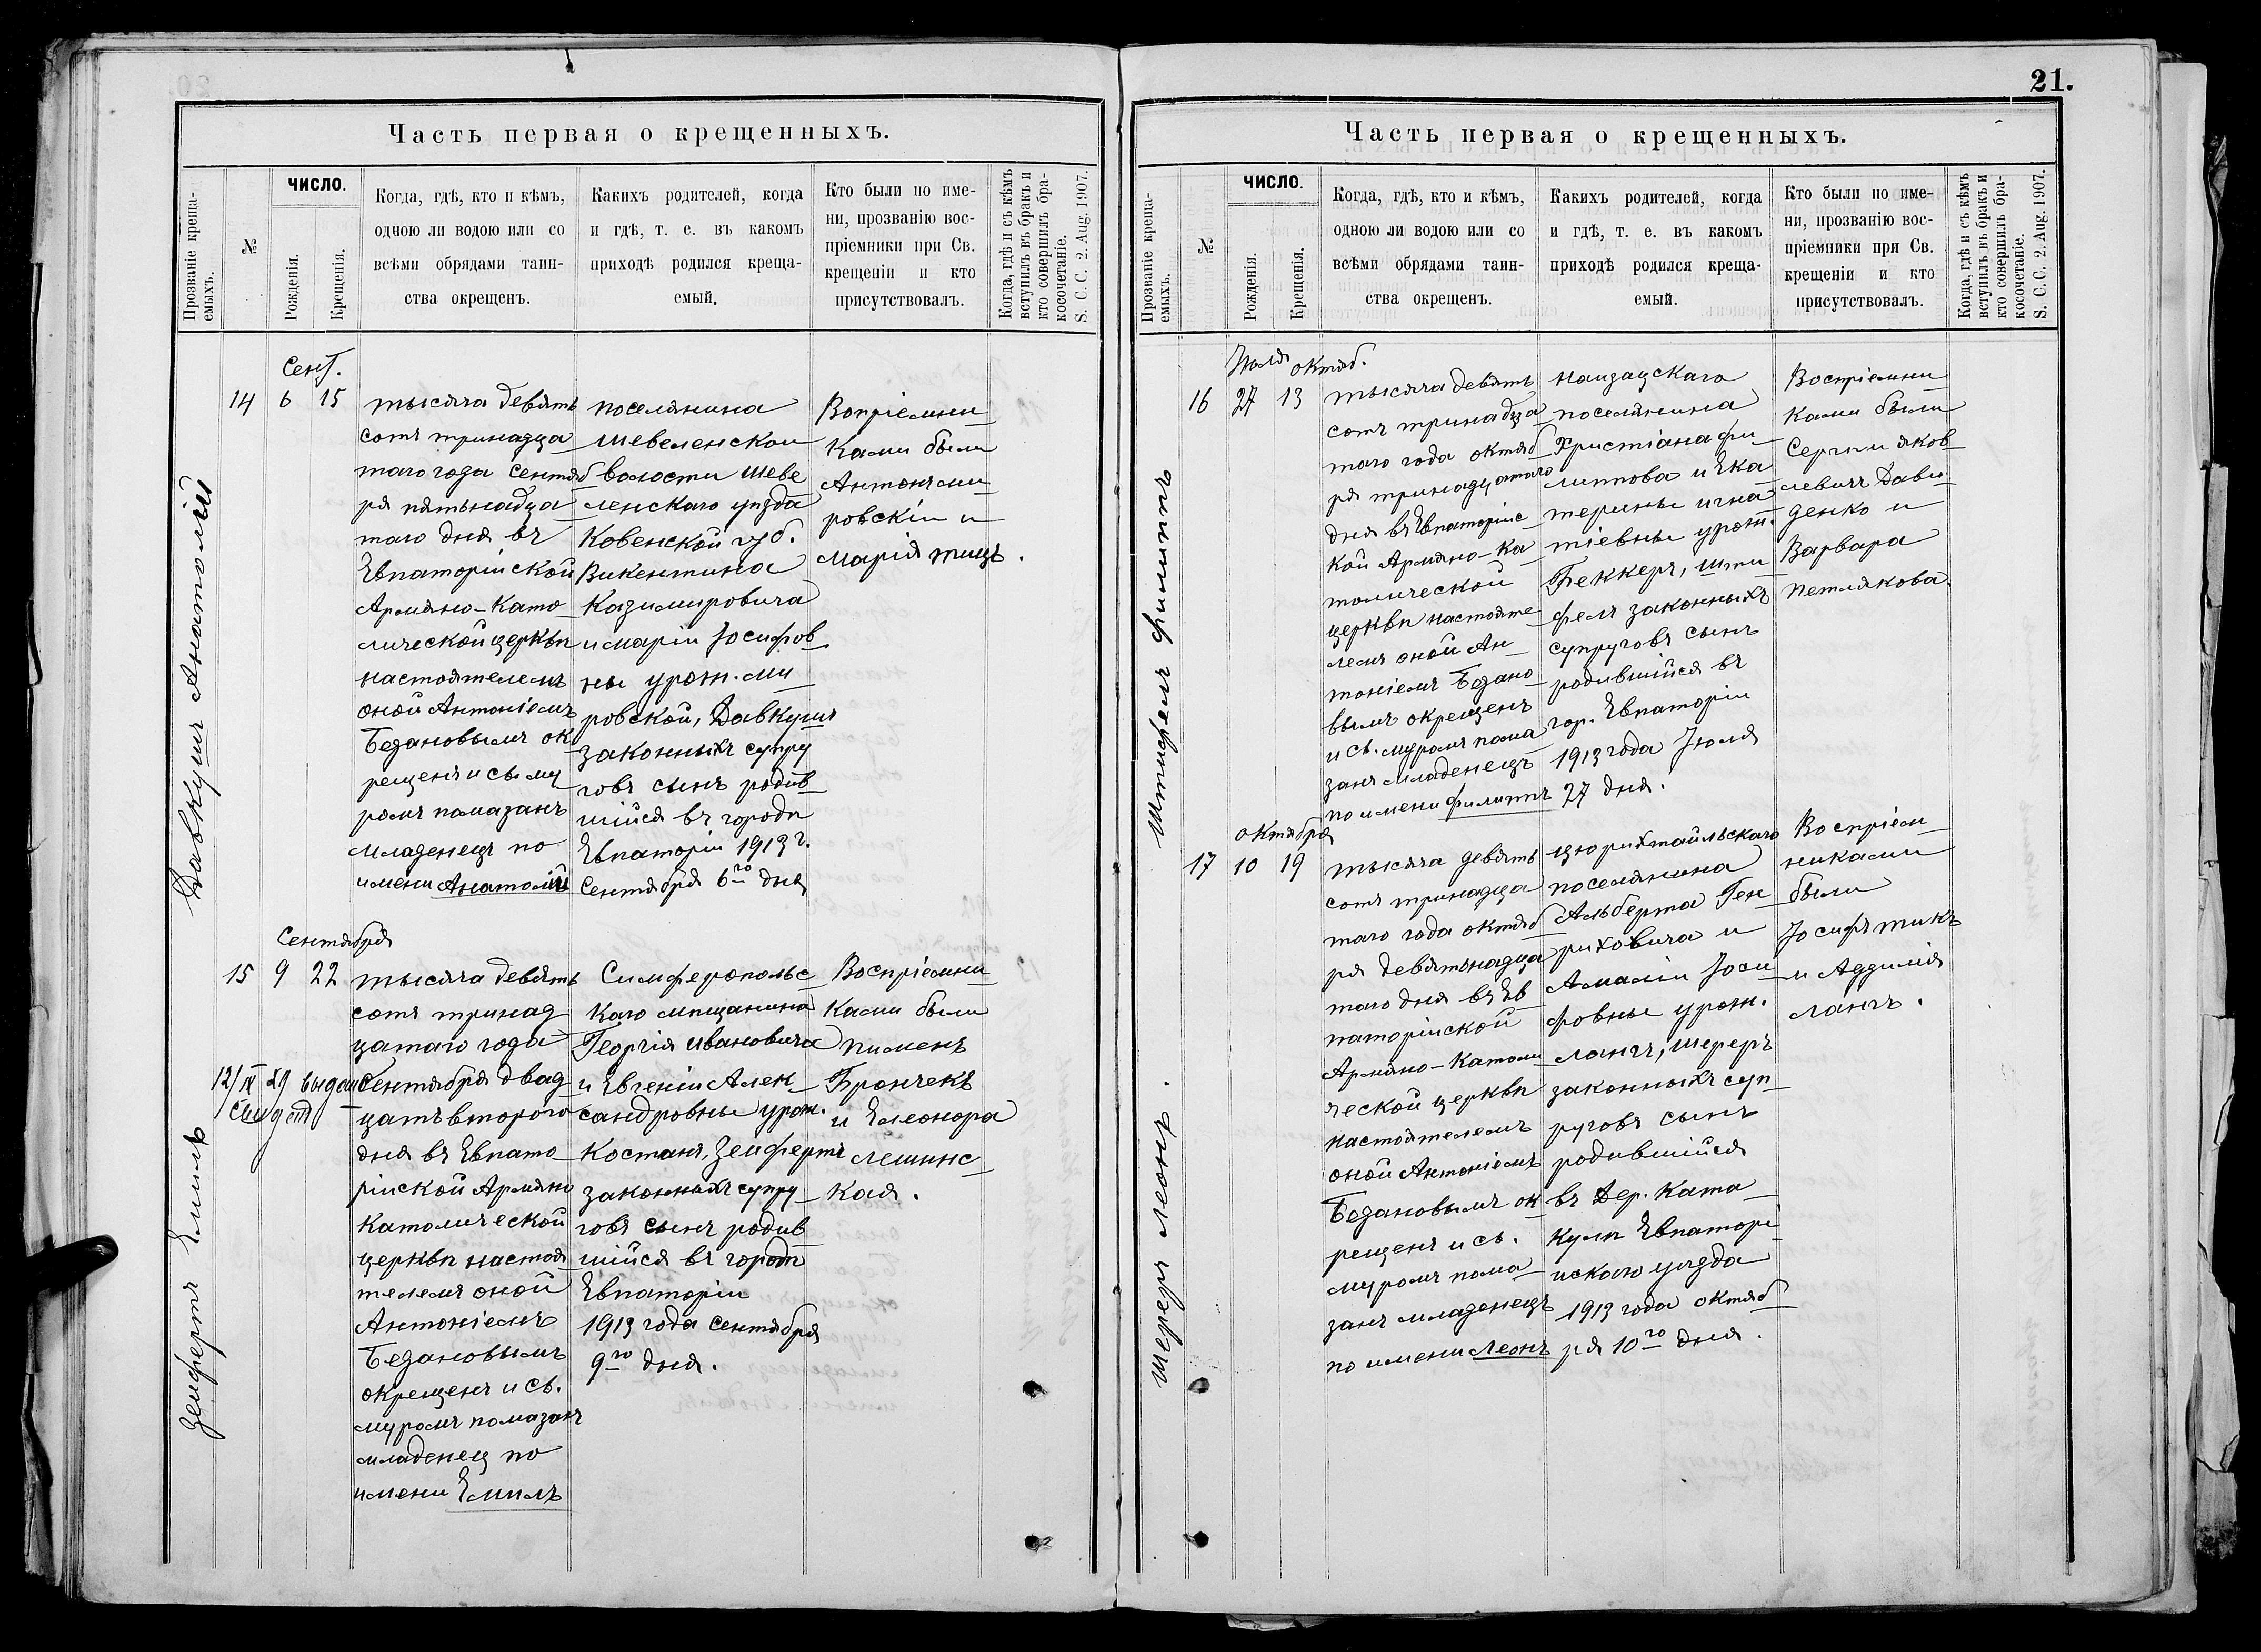 Часть первая о крещенныхъ.
Прозваніе креща-
емыхъ.
№
ЧИСЛО.
Рожденія.
Крещенія.
Когда, гдѣ, кто и кѣмъ,
одною ли водою или со
всѣми обрядами таин-
ства окрещенъ.
Какихъ родителей, когда
и гдѣ, т. е. въ какомъ
приходѣ родился креща-
емый.
Кто были по име-
ни, прозванію вос-
пріемники при Св.
крещеніи и кто
присутствовалъ.
Когда, гдѣ и съ кѣмъ
вступилъ въ бракъ и
кто совершилъ бра-
косочетаніе.
S. C. C. 2. Aug. 1907.
Давкушъ Анатолій
Сент.
14 6 15
тысяча девять
сотъ тринадца
таго года Сентяб
ря пятьнадца
таго дня въ
Евпаторійской
Армяно-Като
лической церкви
настоятелемъ
оной Антоніемъ
Бедановымъ ок
рещенъ и св. му
ромъ помазанъ
младенецъ по
имени Анатолій
поселянина
Шевеленской
волости Шеве
ленскаго уѣзда
Ковенской губ.
Викентина
Казимировича
и Маріи Іосифов
ны урож. Ми
ровской, Давкушъ
законныхъ супру
говъ сынъ родив
шійся въ городѣ
Евпаторіи 1913 г.
Сентября 6го дня
Вопріемни
ками были
Антонъ Ми
ровскій и
Марія Тицъ.
Зейфертъ Емилъ
Сентября
15 9 22
12/IX 29 выдано
Свид
тысяча девять
сотъ тринад
цатаго года
Сентября двад
цать второго
дня въ Евпато
рійской Армяно
Католической
церкви настоя
телемъ оной
Антоніемъ
Бедановымъ
окрещенъ и св.
муромъ помазанъ
младенец по
имени Емилъ
Симферопольс
каго мѣщанина
Георгія Ивановича
и Евгеніи Алек
сандровны урож.
Костанъ, Зейфертъ
законныхъ супру
говъ сынъ родив
шійся въ городѣ
Евпаторіи
1913 года Сентября
9го дня.
Воспріемни
ками были
Пименъ
Брончекъ
и Елеонора
Лешинс
кая.
21.
Часть первая о крещенныхъ.
Прозваніе креща-
емыхъ.
№
ЧИСЛО.
Рожденія.
Крещенія.
Когда, гдѣ, кто и кѣмъ,
одною ли водою или со
всѣми обрядами таин-
ства окрещенъ.
Какихъ родителей, когда
и гдѣ, т. е. въ какомъ
приходѣ родился креща-
емый.
Кто были по име-
ни, прозванію вос-
пріемники при Св.
крещеніи и кто
присутствовалъ.
Когда, гдѣ и съ кѣмъ
вступилъ въ бракъ и
кто совершилъ бра-
косочетаніе.
S. C. C. 2. Aug. 1907.
Штифелъ Филиппъ
Іюля октяб.
16 27 13
тысяча девять
сотъ тринадца
таго года октяб
ря тринадцатаго
дня въ Евпаторійс
кой Армяно-Ка
толической
церкви настояте
лемъ оной Ан
тоніемъ Бедано
вымъ окрещенъ
и св. муромъ пома
занъ младенецъ
по имени Филиппъ
поселянина
Христіана Фи
липпова и Ека
терины Игна
тіевны урож.
Беккеръ, Шти
фелъ законныхъ
супруговъ сынъ
родившійся въ
гор. Евпаторіи
1913 года Іюля
27 дня.
Воспріемни
ками были
Сергѣй Яков
левичъ Дави
денко и
Варвара
Петлякова.
Шереръ Леонъ.
октября
17 10 19
тысяча девять
сотъ тринадца
таго года октяб
ря девятьнадца
таго дня въ Ев
паторійской
Армяно-Католи
ческой церкви
настоятелемъ
оной Антоніемъ
Бедановымъ ок
рещенъ и св.
муромъ пома
занъ младенецъ
по имени Леонъ
Цюрихтайльскаго
поселянина
Альберта Ген
риховича и
Амаліи Іоси
фовны урож.
Лангъ, Шереръ
законныхъ суп
руговъ сынъ
родившійся
въ Дер. Ката
Кулѣ Евпаторі
йскаго уѣзда
1913 года октяб
ря 10го дня.
Воспріем
никами
были
Іосифъ Тикъ
и Аддилія
Лангъ.